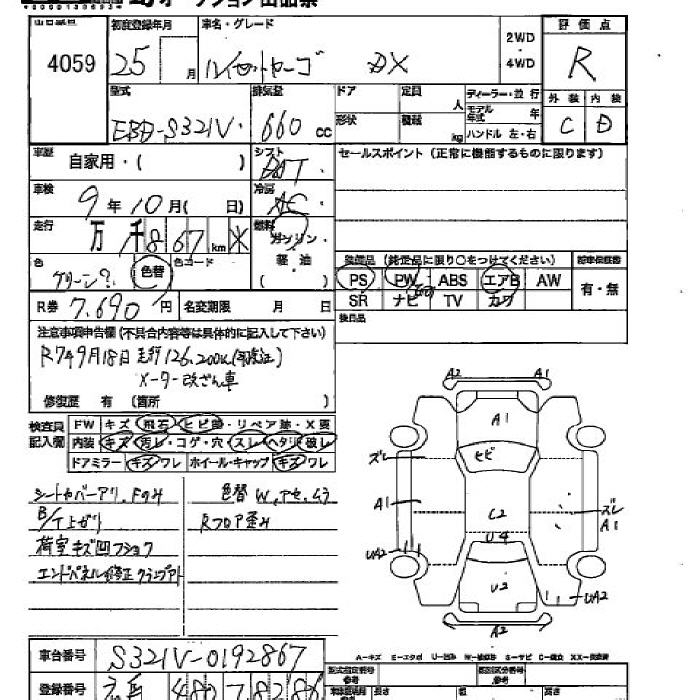 4059
初度登録年月 車名・グレード 2WD 評価点
25 月 ハイゼットカーゴ DX ・4WD R
型式 排気量 ドア 定員 人 ディーラー・並行 外装 内装
EBD-S321V 660 cc 形状 積載 kg モデル年式 年 C D
ハンドル 左・右
車歴 自家用・( ) シフト AT セールスポイント(正常に機能するものに限ります)
車検 9年10月( 日) 冷房 AC
走行 万 千 8 67 km 燃料 ガソリン・軽油
色 グリーン? 色替 色コード ( )
装備品(純正品に限り○をつけてください)
PS PW ABS エアB AW 有・無
SR ナビ TV カワ
R券 7,690円 名変期限 月 日 後日品
注意事項申告欄(不具合内容等は具体的に記入して下さい)
R7年9月18日 走行126,200K
メーター改ざん車
修復歴 有 (箇所 )
検査員記入欄
FW キズ・飛石・ヒビ・リペア跡・X要
内装 キズ・汚レ・コゲ・穴・スレ・ヘタリ・破レ
ドアミラー キズワレ ホイール・キャップ キズワレ
シートカバーアリ、Fのみ 色替 W、アセ、ムラ
B/T上ガリ Rフロア歪み
荷室キズ凹フショク
エンドパネル修正クランプアト
A2 A2
A1
ズレ ヒビ
A1 C2 ズレ A1
UA2 U4
U2 UA2
A2
A-キズ
車台番号 S321V-0192867
登録番号 480 7 82 86
長さ 幅 高さ